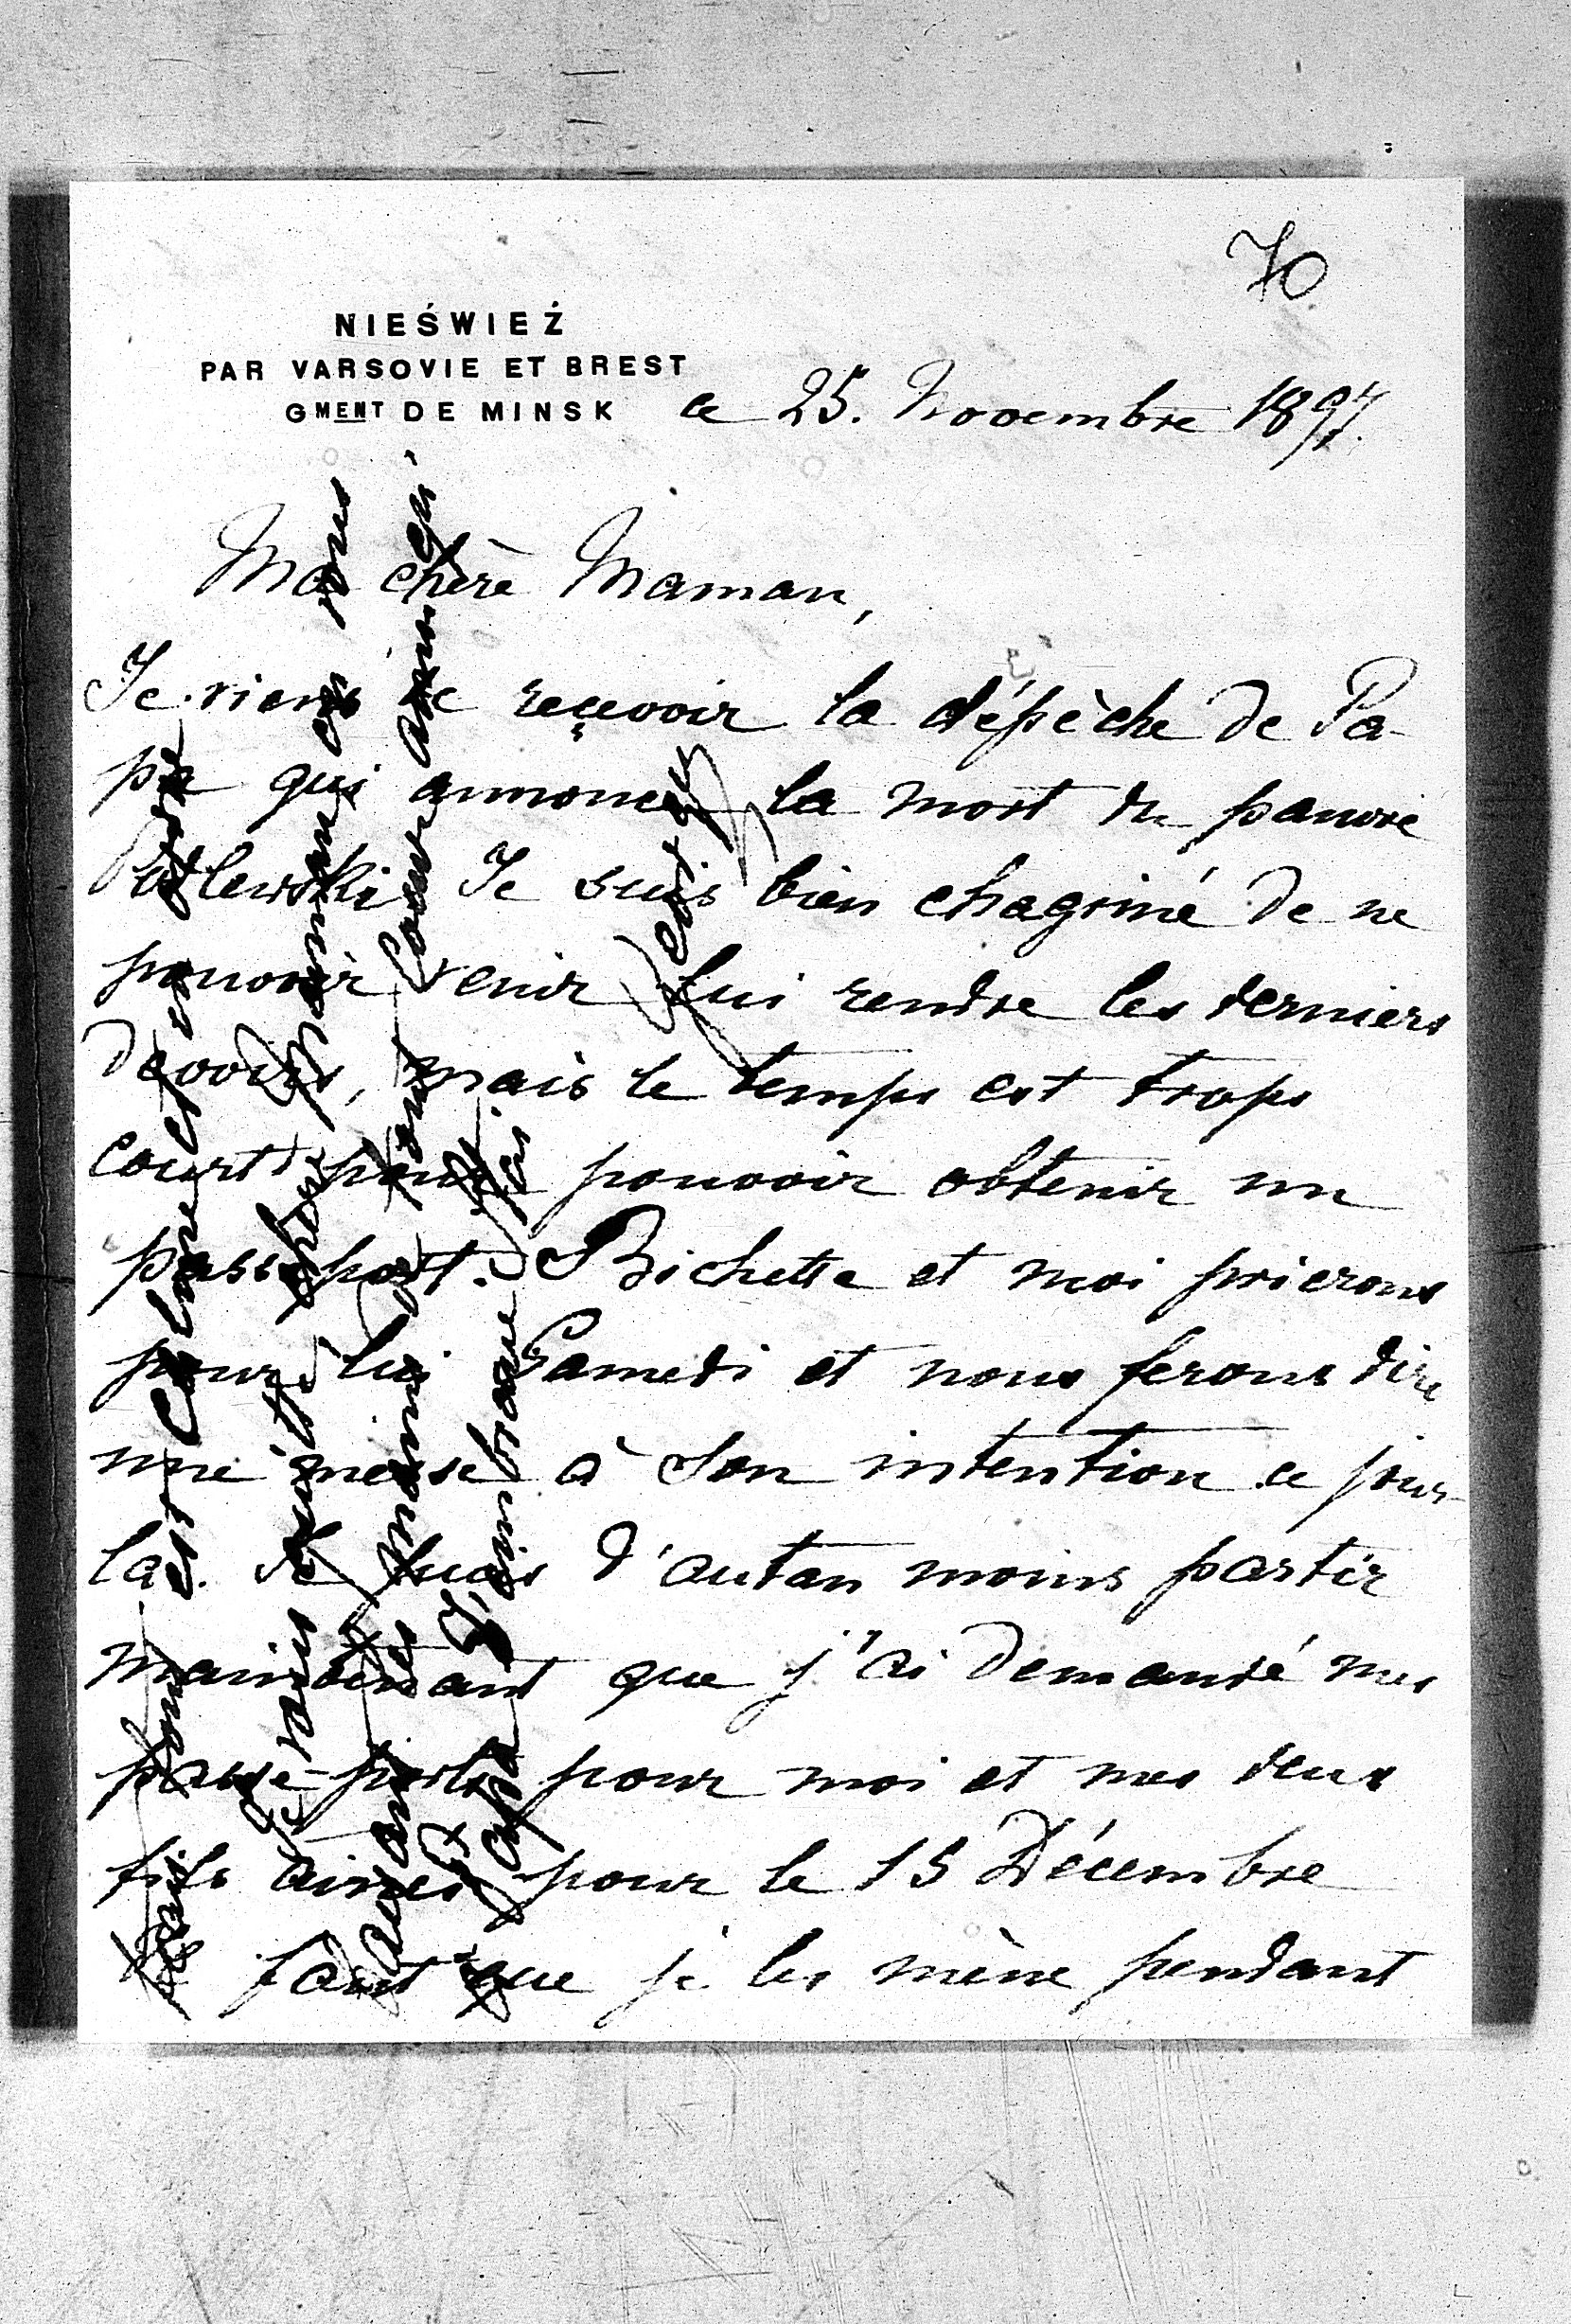 70
NIEŚWIEŻ
PAR VARSOVIE ET BREST
GMENT DE MINSK
ce 25. Novembre 1897.
Ma chère Maman,
Je viens de reçevoir la dépèche de Pa-
pa qui annonce la mort du pauvre
Je suis bien chagriné de ne
pouvoir venir lui rendre les derniers
devoirs, mais le temps est trops
court pour pouvoir obtenir un
passeport. Bichette et moi prierons
pour lui Samedi et nous ferons dire
une messe à son intention ce jour-
la. Je puis d'autan moins partir
maintenant que j'ai demandé mes
passe-ports pour moi et mes deux
fils ainés pour le 15 Décembre
faut que je les mène pendant
est calme et
Je vais chère Maman et vous
mains de tout coeur ainsi qu'
à Papa. J'embrasse